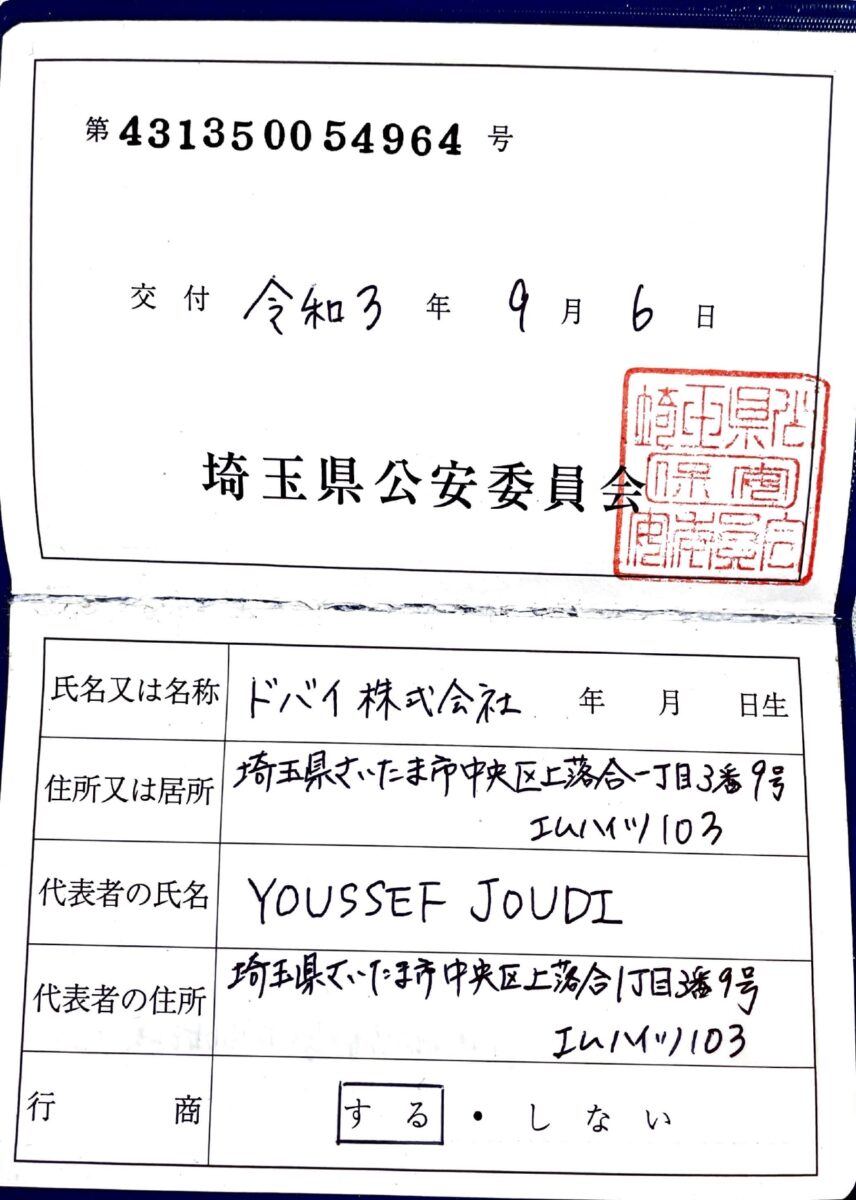 第431350054964号
交付 令和3年9月6日
埼玉県公安委員会
氏名又は名称 ドバイ株式会社 年 月 日生
住所又は居所 埼玉県さいたま市中央区上落合一丁目3番9号
エムハイツ103
代表者の氏名 YOUSSEF JOUDI
代表者の住所 埼玉県さいたま市中央区上落合1丁目3番9号
エムハイツ103
行商 する・しない